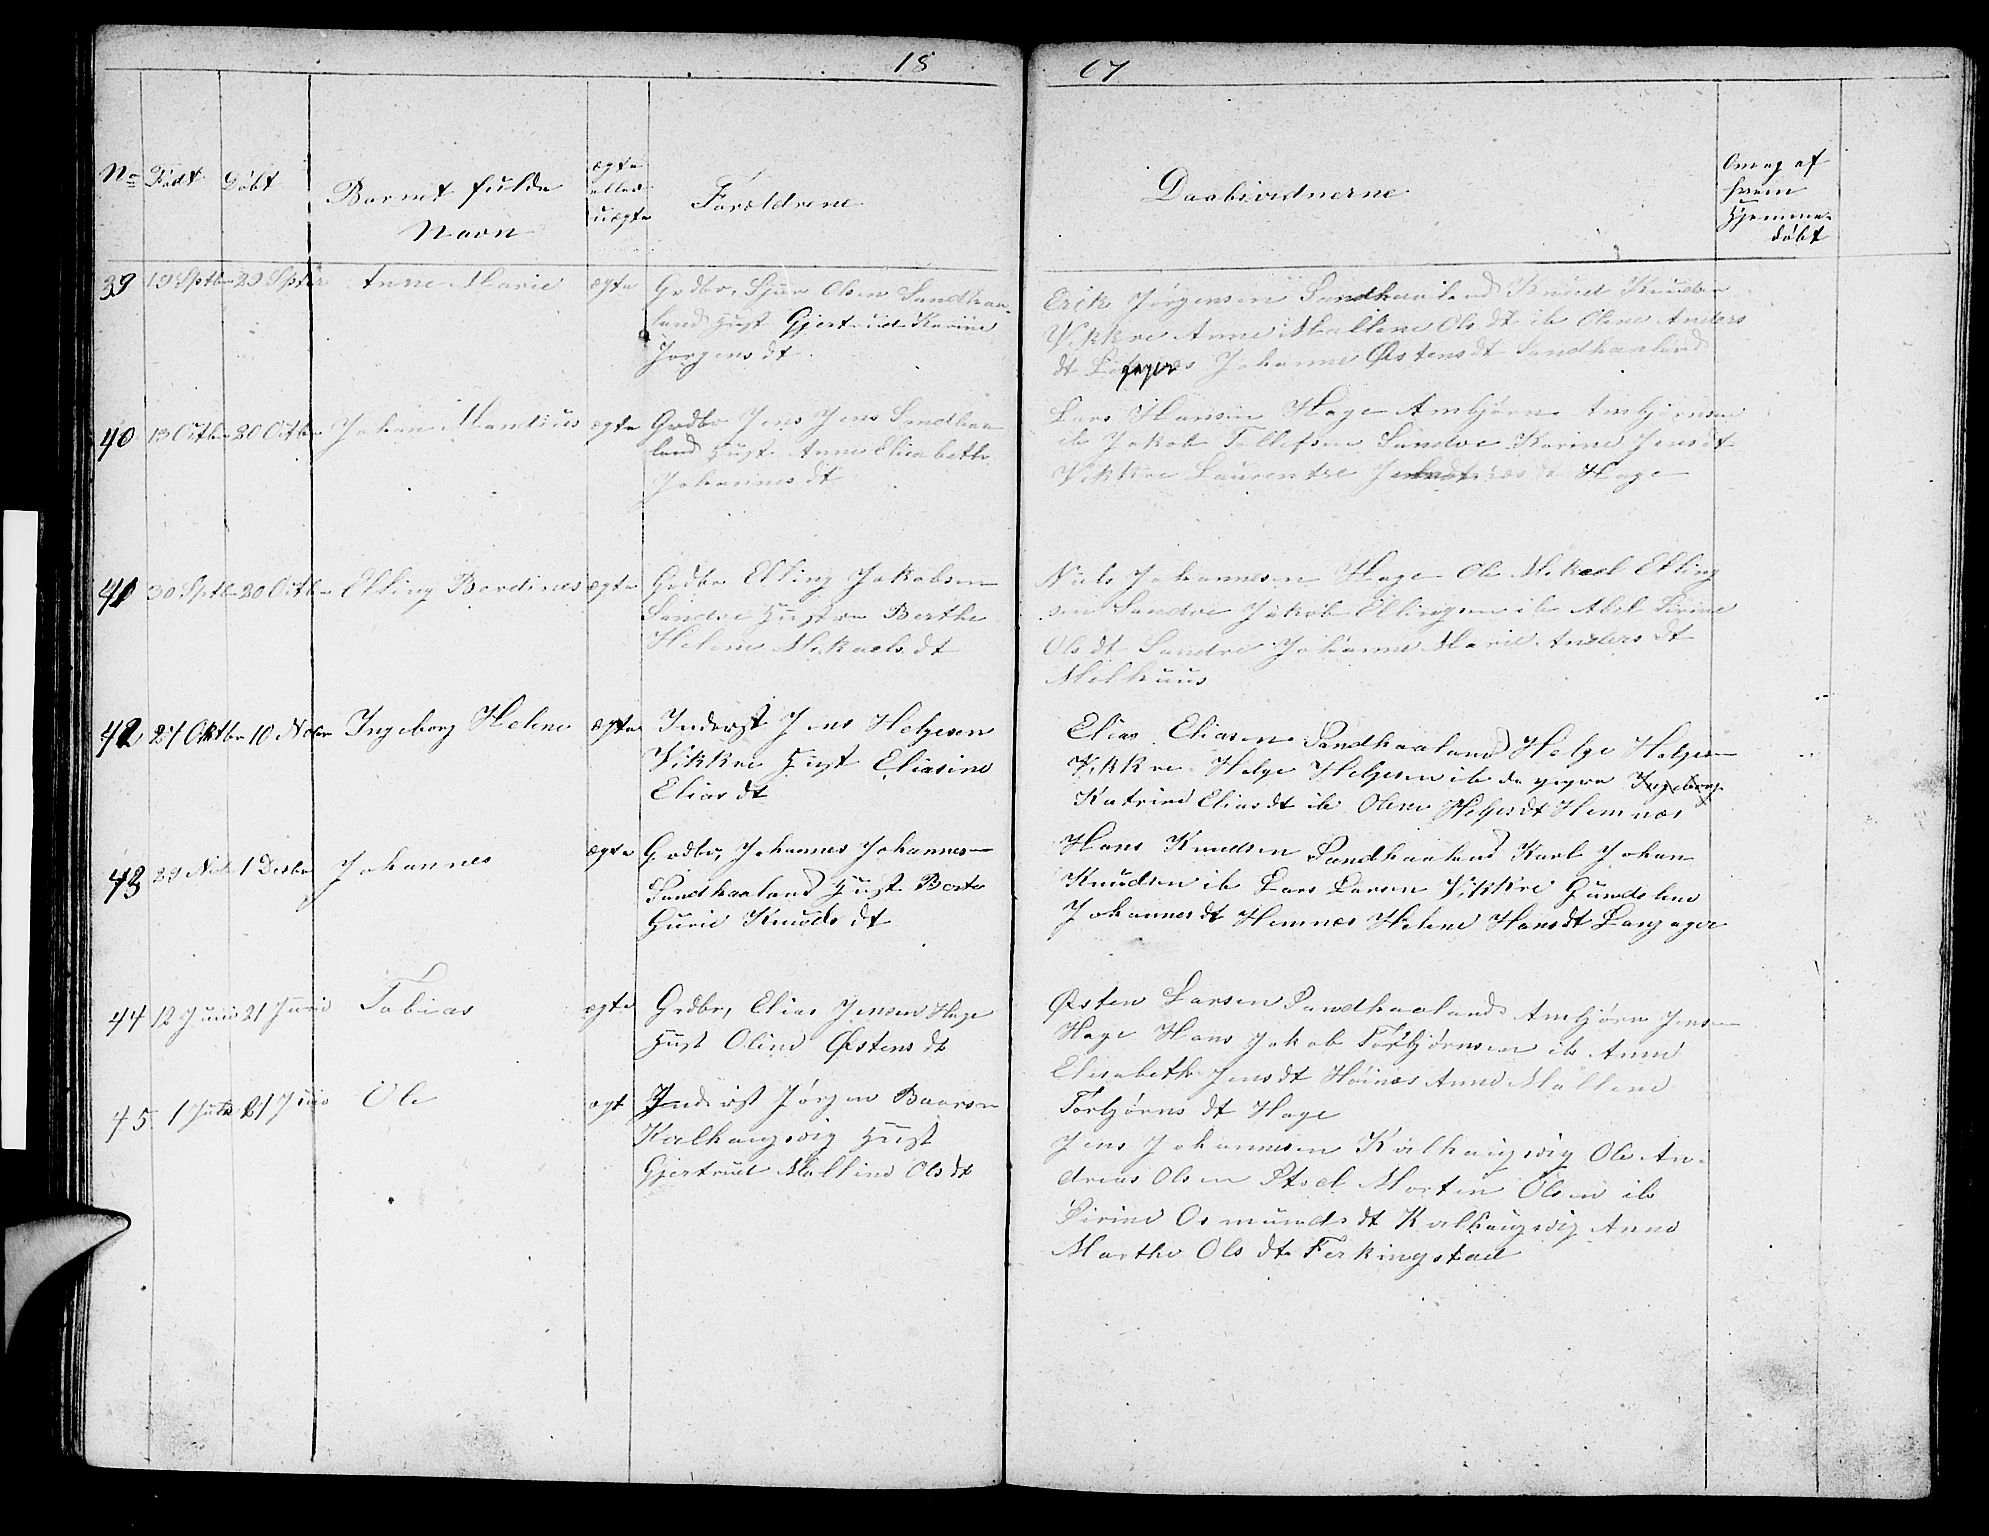 18 67
No Født Døbt Barnet fulde Navn ægte eller uægte Forældrene Daabsvidnerne Om og af hvem Hjemme-døbt
39 19 Sptbr 29 Sptbr Anne Marie ægte Grdbr. Sjur Olsen Sandhaa-
land Hust Gjertrud Karine
Jørgens dt
Erik Jørgensen Sandhaaland Knud Knudsen
Vikkre Anne Mallene Ols dt ib Olene Anders
dt Johanne Østens dt Sandhaaland
40 13 Octbr 20 Octbr Johan Mantius ægte Grdbr Jens Jens Sandhaa
land Hust Anne Elisabeth
Johannes dt
Lars Hansen Hage Ambjørn Ambjørnsen
ib Jakob Tollefsen Sandve Karine Jens dt
Vikkre Laurentse Hage
41 30 Sptb 20 Octbr Elling Berdines ægte Grdbr Elling Jakobsen
Sandve Hustru Berthe
Helene Mikaels dt
Niels Johannesen Hage Ole Mikael Elling
sen Sandve Jakob Ellingsen ib Abel Sirine
Ols dt Sandve Johanne Marie Anders dt
Melhuus
42 27 Oktbr 10 Nobr Ingeborg Helene ægte Inderst Jens Helgesen
Vikkre Hust Eliasine
Elias dt
Elias Eliasen Sandhaaland Helge Helgesen
Vikkre Helge Helgesen ib de yngre Ingeborg
Katrine Elias dt ib Olene Helges dt Hemnæs
43 29 Nob 1 Desbr Johannes ægte Grdbr, Johannes Johannes
Sandhaaland Hust Berte
Gurie Knuds dt
Hans Knudsen Sandhaaland Karl Johan
Knudsen ib Lars Larsen Vikkre Gundelene
Johannes dt Hemnæs Helene Hans dt Langager
44 12 Juni 21 Juni Tobias ægte Grdbr, Elias Jensen Hage
Hust Oline Østens dt
Østen Larsen Sandhaaland Ambjørn Jensen
Hage Hans Jakob Torbjørnsen ib Anne
Elisabeth Jens dt Høinæs Anne Mallene
Torbjørns dt Hage
45 1 Juni 21 Juni Ole ægt Inderst Jørgen Baarsen
Kalhaugvig Hust
Gjertrud Malline Ols dt
Jens Johannesen Kalhaugvig Ole An-
dreas Olsen Stød Morten Olsen ib
Sirine Osmunds dt Kalhaugvig Anne
Marthe Ols dt Ferkingstad